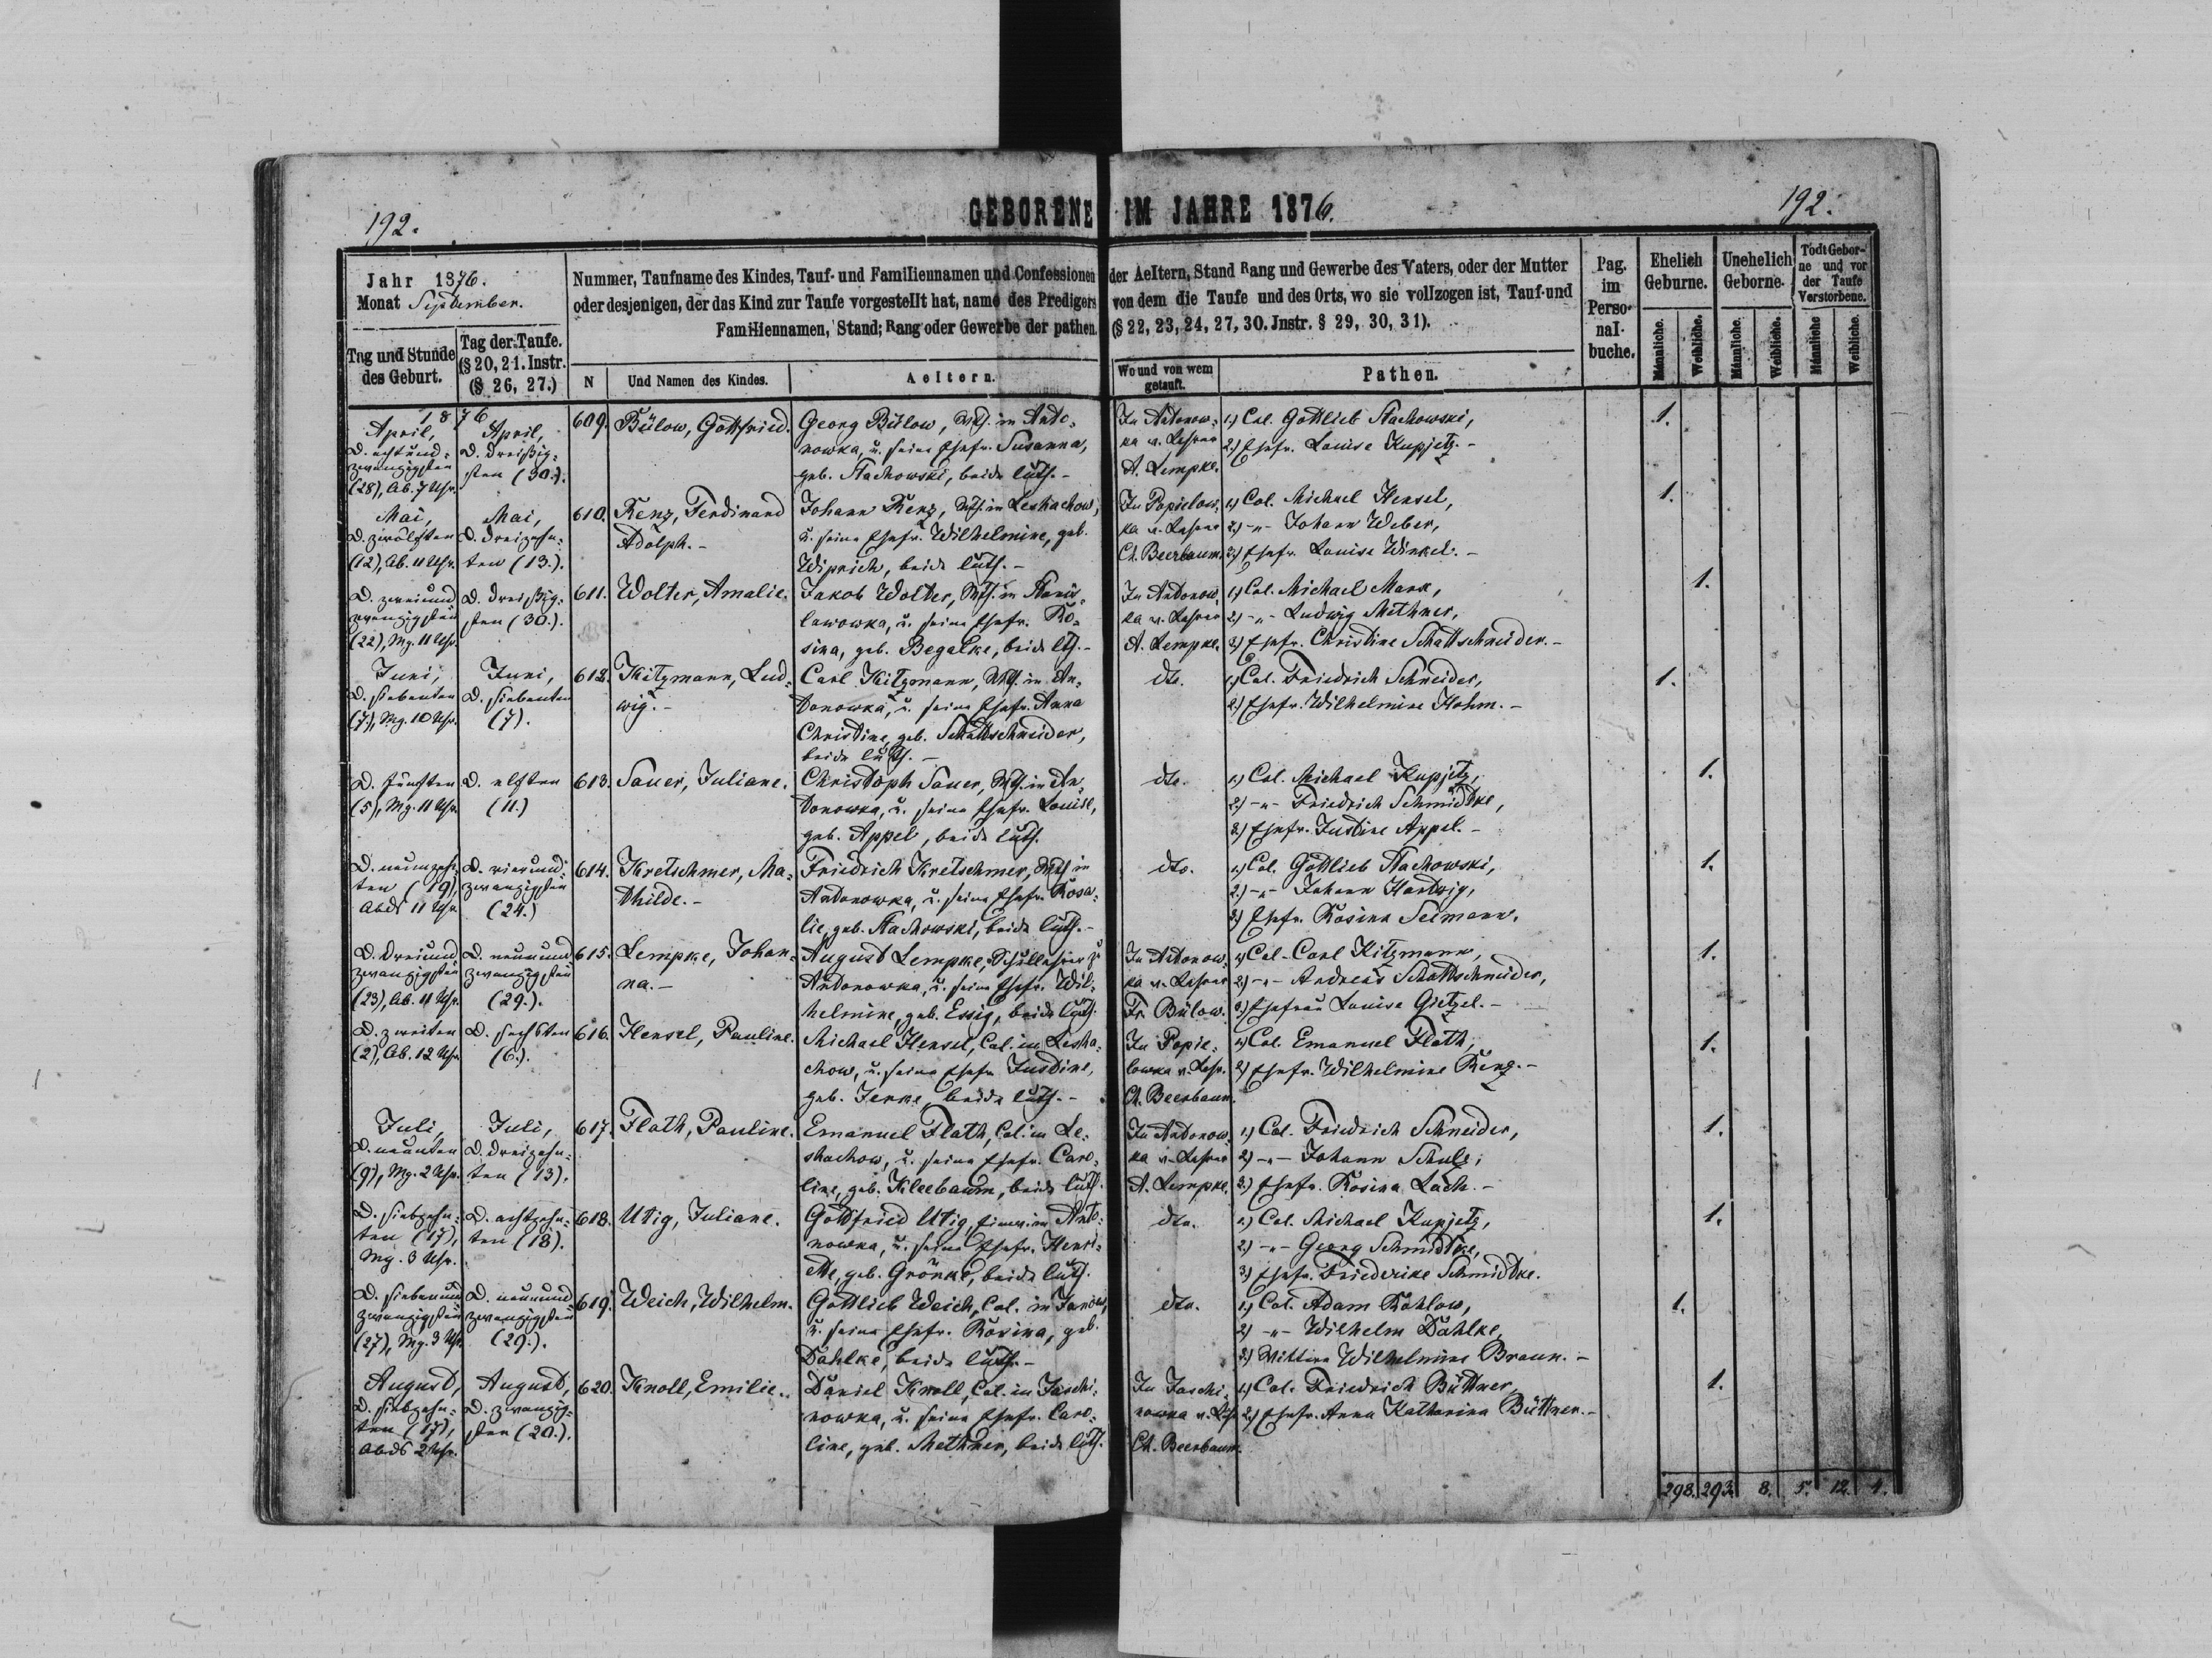 192.
GEBORENE IM JAHRE 1876.
192.
Jahr 1876.
Monat September.
Tag und Stunde des Geburt.
Tag der Taufe. (§ 20, 21. Instr. (§ 26, 27.)
Nummer, Taufname des Kindes, Tauf- und Familiennamen und Confessionen der Aeltern, Stand Rang und Gewerbe des Vaters, oder der Mutter
oder desjenigen, der das Kind zur Taufe vorgestellt hat, name des Predigers von dem die Taufe und des Orts, wo sie vollzogen ist, Tauf-und
Familiennamen, Stand; Rang oder Gewerbe der pathen. (§ 22, 23, 24, 27, 30. Jnstr. § 29, 30, 31).
N
Und Namen des Kindes.
Aeltern.
Wo und von wem getauft.
Pathen.
Pag. im Perso-nal-buche.
Ehelich Geburne.
Unehelich Geborne.
Todt Gebor-ne und vor der Taufe Verstorbene.
Männliche. Weibliche. Männliche. Weibliche. Männliche Weibliche.
1876
April,
D. achtund-
zwanzigsten
(28), Ab. 7 Uhr.
April,
D. dreißig-
sten (30.).
609. Bülow, Gottfried.
Georg Bülow, Wth. in Anto-
nowka, u. seine Ehefr. Susanna,
geb. Stachowski, beide luth.-
In Antonow-
ka v. Lehrer
A. Lempke.
1.) Col. Gottlieb Stachowski,
2.) Ehefr. Louise Kupjetz.-
1.
Mai,
D. zwölften
(12), Ab. 11 Uhr.
Mai,
D. dreizehn-
ten (13.).
610. Renz, Ferdinand
Adolph.-
Johann Renz, Wth. in Leshachow,
u. seine Ehefr. Wilhelmine, geb.
Wiprich, beide luth.-
In Popielow-
ka v. Lehrer
Ch. Beerbaum.
1.) Col. Michael Hensel,
2.) -"- Johann Weber,
3.) Ehefr. Louise Winkel.-
1.
D. zweiund
zwanzigsten
(22), Mg. 11 Uhr.
D. dreißig-
sten (30.).
611. Wolter, Amalie.
Jakob Wolter, Wth. in Stanis-
lawowka, u. seine Ehefr. Ro-
sina, geb. Begalke, beide lth.-
In Antonow-
ka v. Lehrer
A. Lempke.
1.) Col. Michael Mark,
2.) -"- Ludwig Methner,
3.) Ehefr. Christine Schattschneider.-
1.
Juni,
D. siebenten
(7), Mg. 10 Uhr.
Juni,
D. siebenten
(7).
612. Kitzmann, Lud-
wig.-
Carl Kitzmann, Wth. in An-
tonowka, u. seine Ehefr. Anna
Christine, geb. Schattschneider,
beide luth.-
dto.
1.) Col. Friedrich Schneider,
2.) Ehefr. Wilhelmine Hohm.-
1.
D. fünften
(5), Mg. 11 Uhr.
D. elften
(11.)
613. Sauer, Juliane.
Christoph Sauer, Wth. in An-
tonowka, u. seine Ehefr. Louise,
geb. Appel, beide luth.
dto.
1.) Col. Michael Kupjetz,
2.) -"- Friedrich Schmidtke,
3.) Ehefr. Justine Appel.-
1.
D. neunzehn-
ten (19),
Abds 11 Uhr.
D. vierund-
zwanzigsten
(24.)
614. Kretschmer, Ma-
thilde.-
Friedrich Kretschmer, Wth. in
Antonowka, u. seine Ehefr. Rosa-
lie, geb. Stachowski, beide luth.-
dto.
1.) Col. Gottlieb Stachowski,
2.) -"- Johann Hartwig,
3.) Ehefr. Rosina Seimann.
1.
D. dreiund
zwanzigsten
(23), Ab. 11 Uhr.
D. neunund
zwanzigsten
(29.).
615. Lempke, Johan-
na.-
August Lempke, Schullehrer zu
Antonowka, u. seine Ehefr. Wil-
helmine, geb. Essig, beide luth.
In Antonow-
ka v. Lehrer
Fr. Bülow.
1.) Col. Carl Kitzmann,
2.) -"- Andreas Schattschneider,
3.) Ehefrau Louise Gietzel.-
1.
D. zweiten
(2), Ab. 12 Uhr.
D. sechsten
(6.).
616. Hensel, Pauline.
Michael Hensel, Col. in Lesha-
chow, u. seine Ehefr. Justine,
geb. Jerke, beide luth.-
In Popie-
lowka v. Lehr.
Ch. Beerbaum.
1.) Col. Emanuel Flath,
2.) Ehefr. Wilhelmine Renz.-
1.
Juli,
D. neunten
(9), Mg. 2 Uhr.
Juli,
D. dreizehn-
ten (13).
617. Flath, Pauline.
Emanuel Flath, Col. in Le-
shachow, u. seine Ehefr. Caro-
line, geb. Kleebaum, beide luth.
In Antonow-
ka v. Lehrer
A. Lempke.
1.) Col. Friedrich Schneider,
2.) -"- Johann Schulz,
3.) Ehefr. Rosina Lach.-
1.
D. siebzehn-
ten (17),
Mg. 3 Uhr.
D. achtzehn-
ten (18).
618. Utig, Juliane.
Gottfried Utig, Einw. in Anto-
nowka, u. seine Ehefr. Henri-
ette, geb. Grönke, beide luth.
dto.
1.) Col. Michael Kupjetz,
2.) -"- Georg Schmidtke,
3.) Ehefr. Friederike Schmidtke.
1.
D. siebenund
zwanzigsten
(27), Mg. 3 Uhr.
D. neunund
zwanzigsten
(29.).
619. Weich, Wilhelm.
Gottlieb Weich, Col. in Janow,
u. seine Ehefr. Rosina, geb.
Dahlke, beide luth.-
dto.
1.) Col. Adam Rohlow,
2.) -"- Wilhelm Dahlke,
3.) Wittwe Wilhelmine Braun.-
1.
August,
D. siebzehn-
ten (17),
Abds 2 Uhr.
August,
D. zwanzig-
sten (20.).
620. Knoll, Emilie.
Daniel Knoll, Col. in Jaschi-
nowka, u. seine Ehefr. Caro-
line, geb. Methner, beide luth.
In Jaschi-
nowka v. Lehr.
Ch. Beerbaum.
1.) Col. Friedrich Büttner,
2.) Ehefr. Anna Katharina Büttner.-
1.
298. 293. 8. 5. 12. 4.